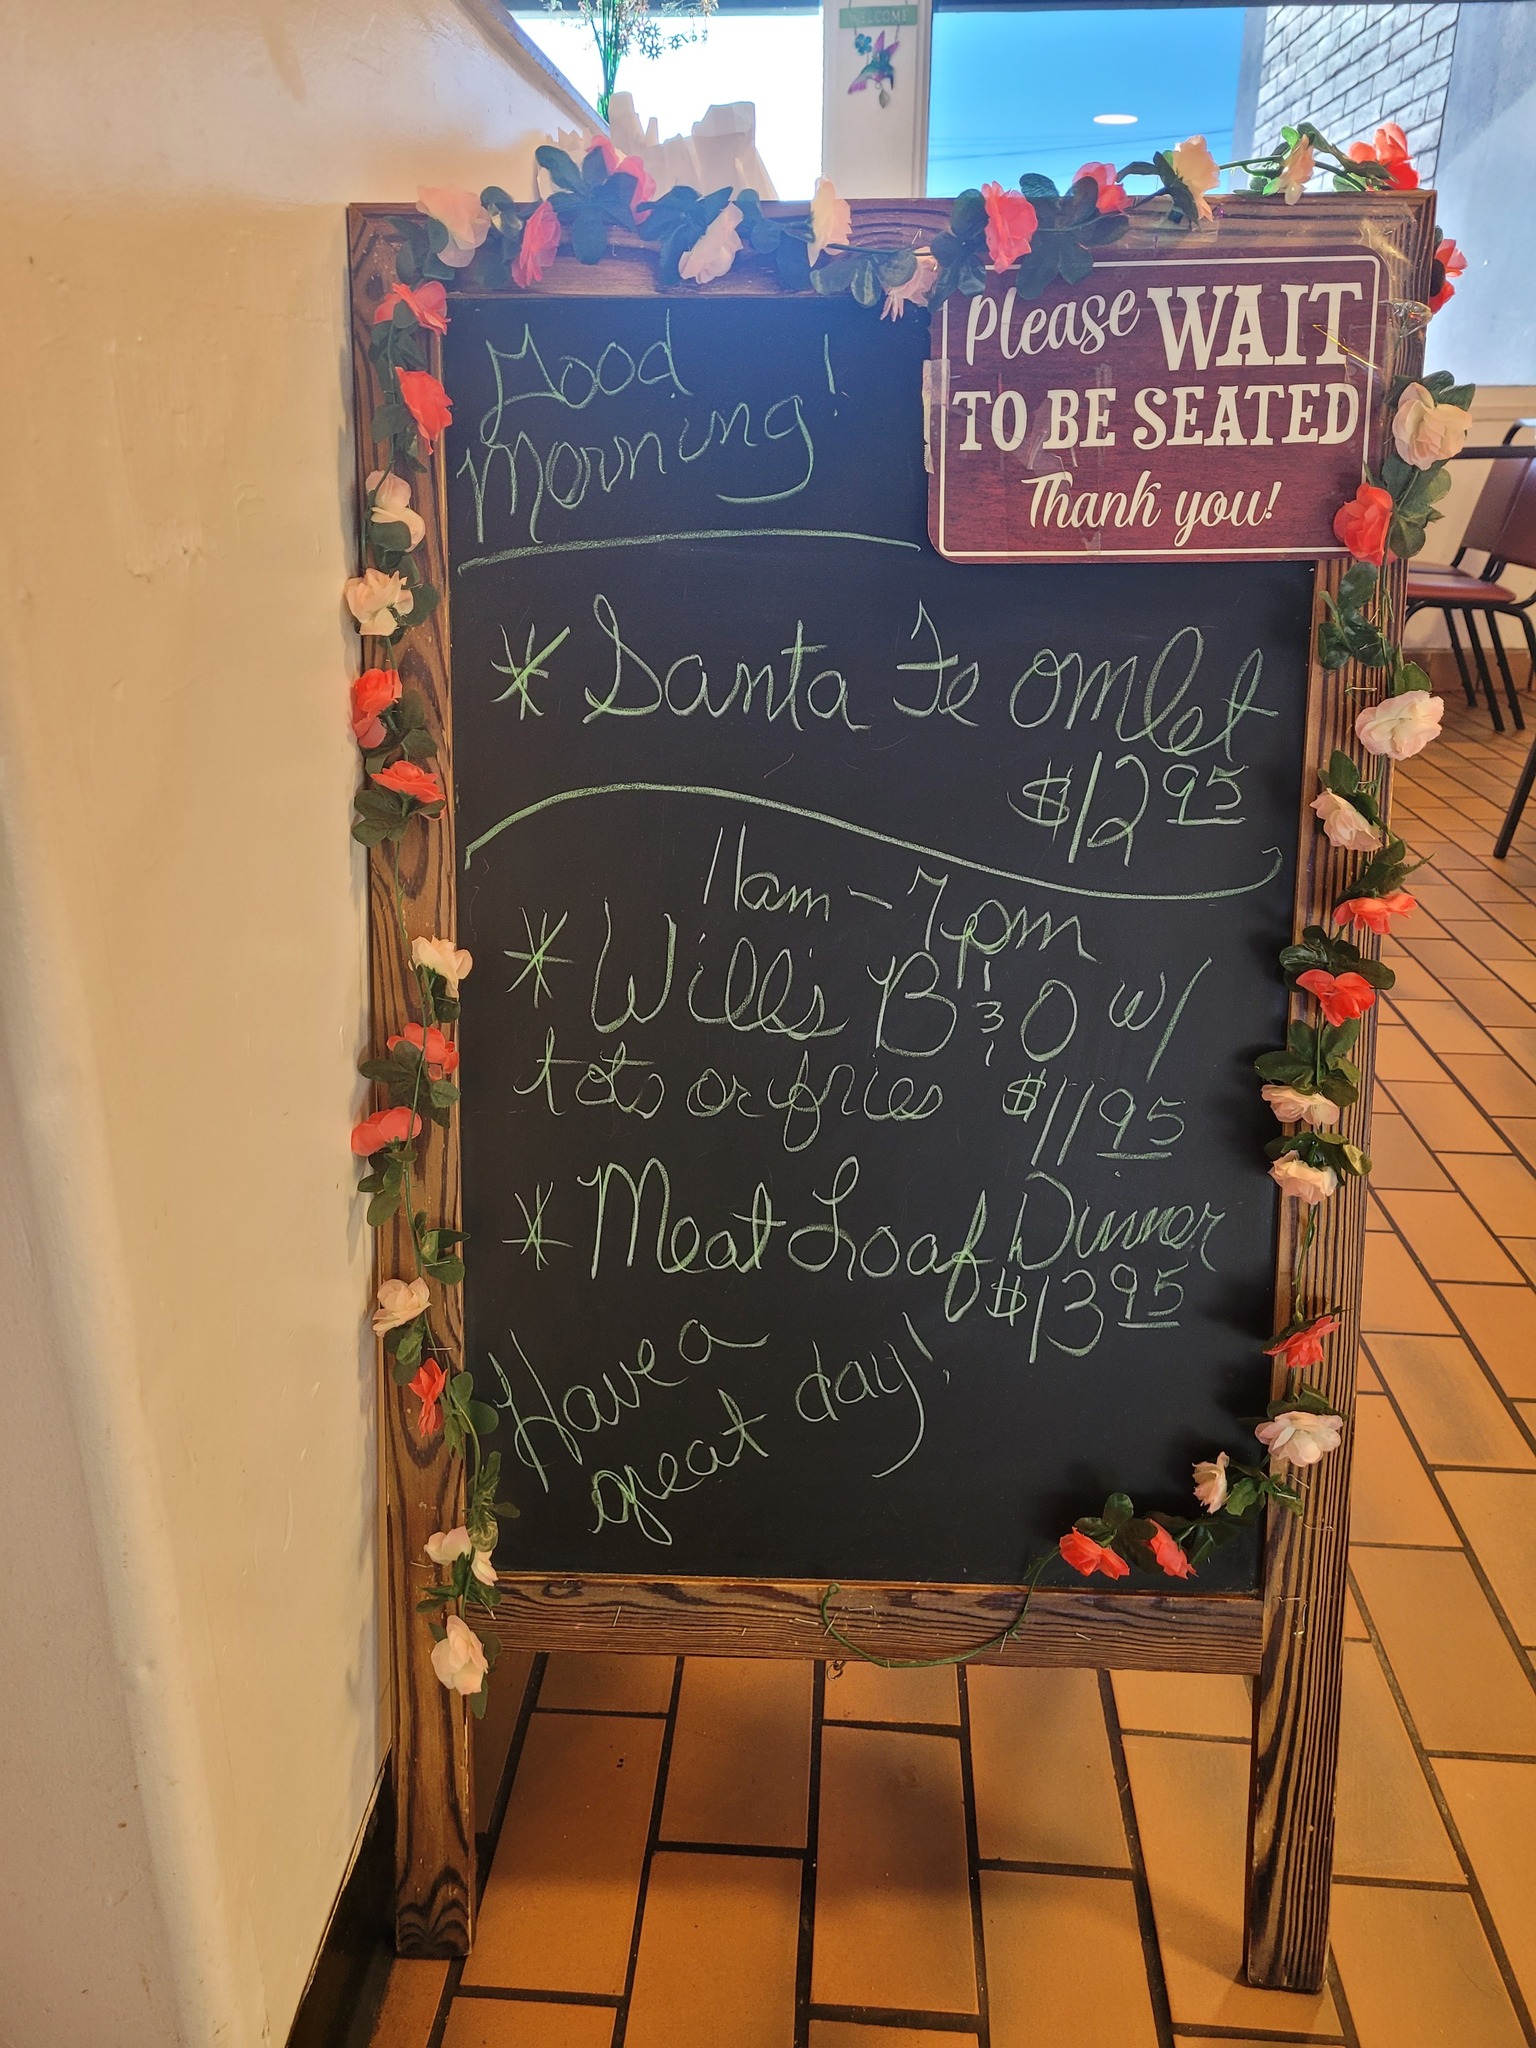 WELCOME
Please WAIT
TO BE SEATED
Thank you!
Good
morning!
* Santa Fe omlet
$12 95
11am - 7pm
* Will's B & O w/
tots or fries $11 95
* Meat Loaf Dinner
$13 95
Have a
great day!